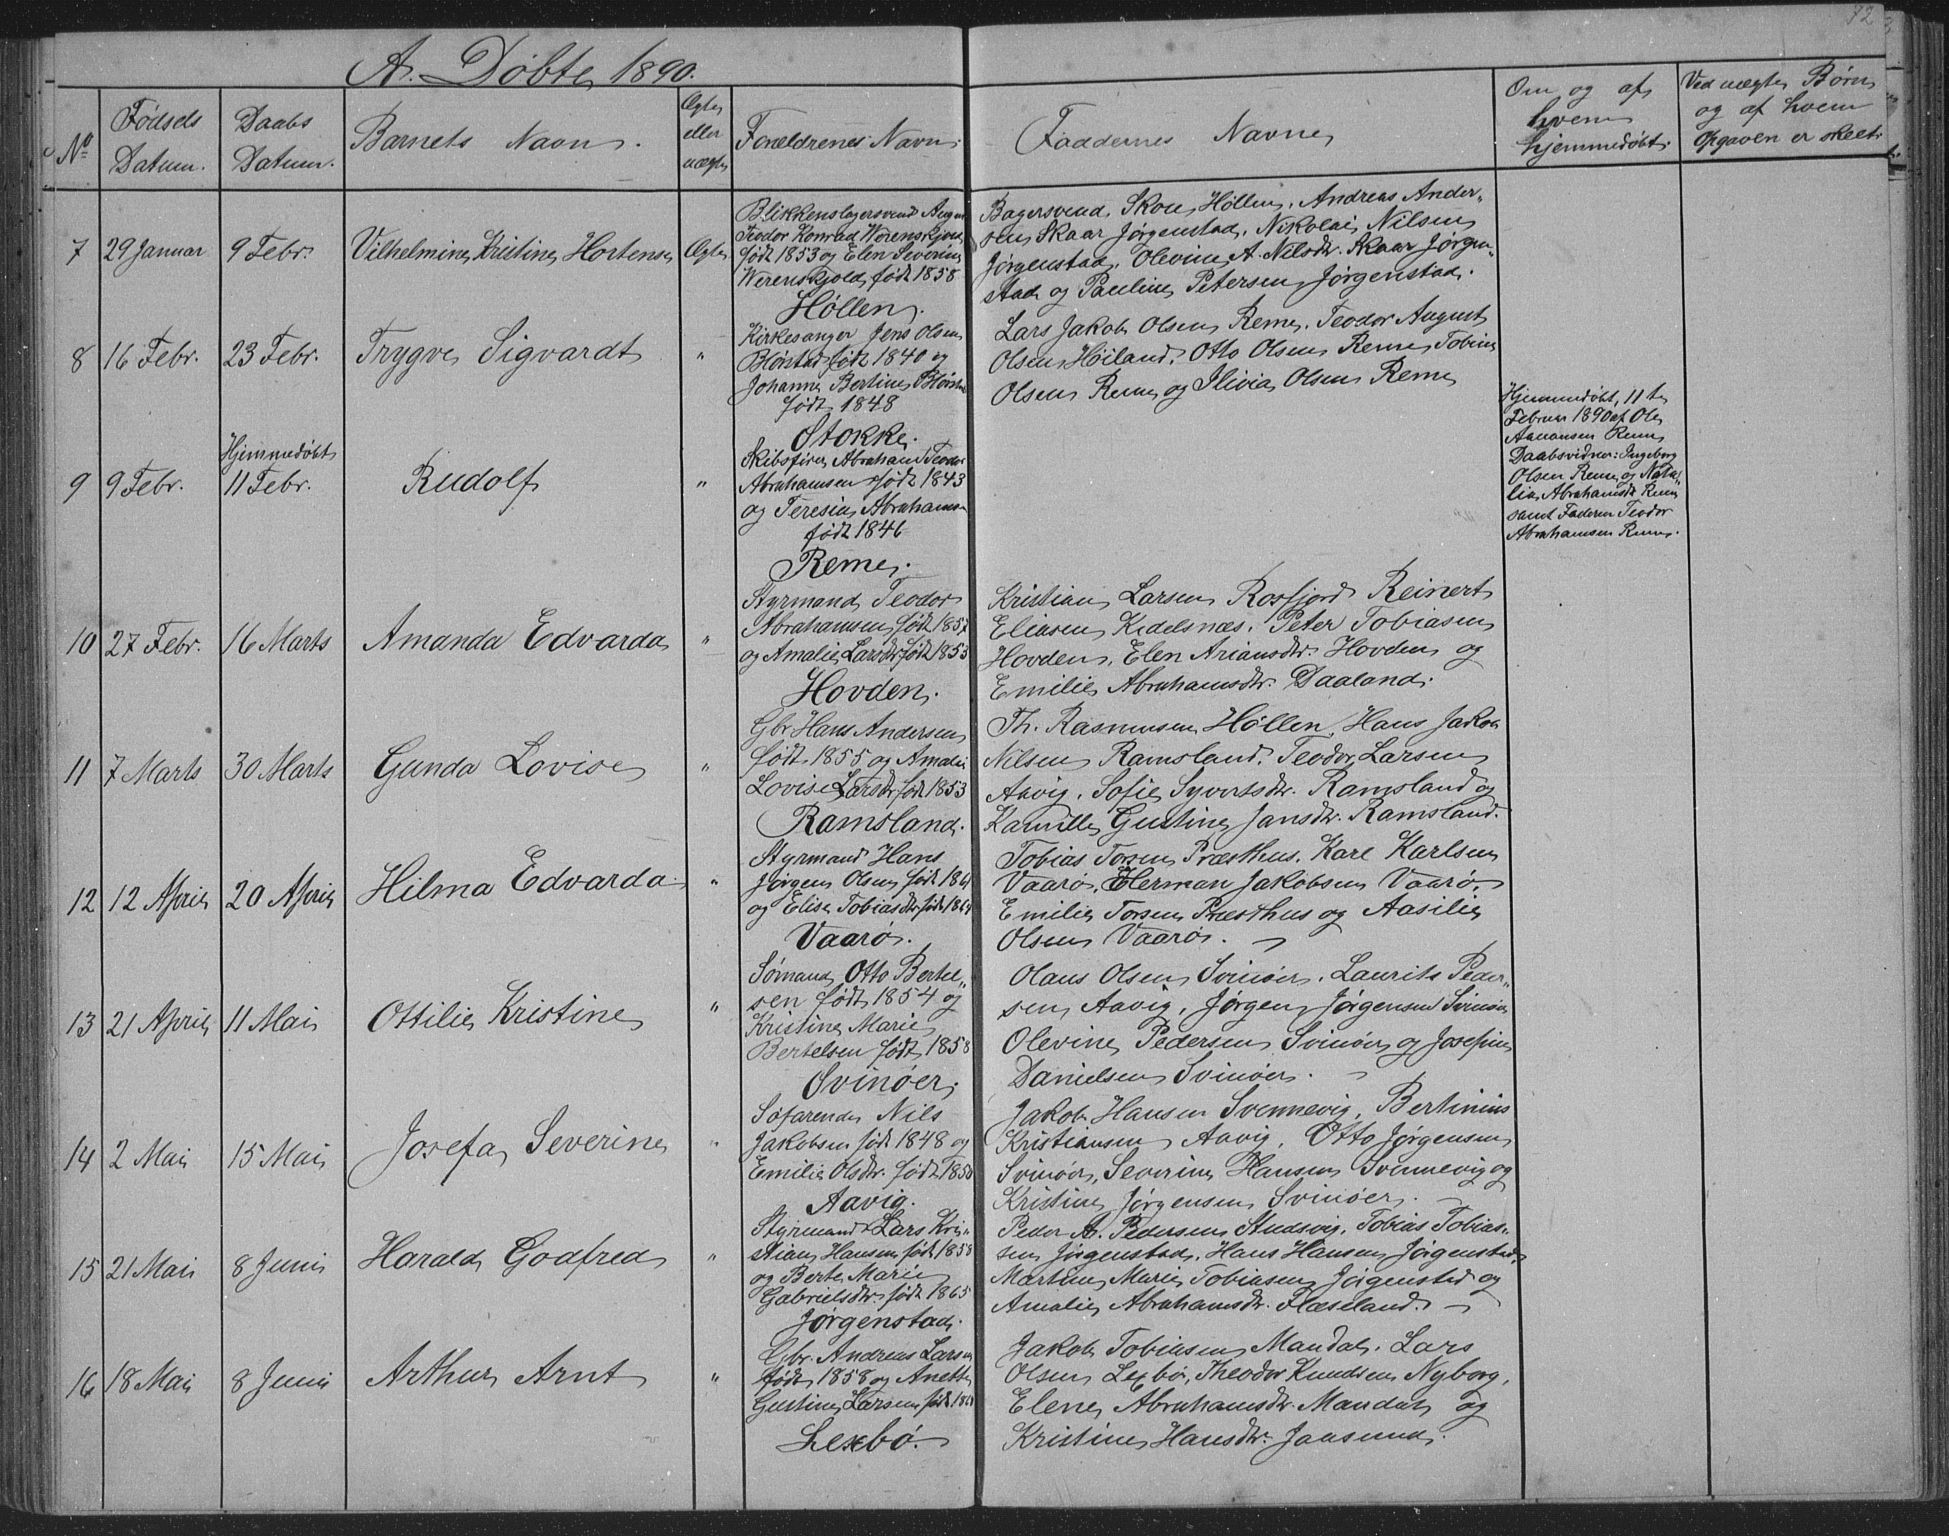 72
A. Døbte 1890.
No
Fødsels
Datum.
Daabs
Datum.
Barnets Navn.
Ægte
eller
uægte
Forældrenes Navn.
Faddernes Navne
Om og af
hvem
hjemmedøbt.
Ved uægte Børn
og af hvem
Opgaven er skeet.
7 29 Januar 9 Febr. Vilhelmine Kristine Hortense Ægte
Blikkenslagersvend August
Teodor Konrad Werenskjold
født 1853 og Elen Severine
Werenskjold, født 1858
Høllen.
Bagersvend Skou Høllen, Andreas Ander-
sen Skaar Jørgenstad, Nikolai Nilsen
Jørgenstad, Olevine A. Nilsdtr. Skaar Jørgen-
stad og Pauline Petersen Jørgenstad.
8 16 Febr. 23 Febr. Trygve Sigvardt "
Kirkesanger Jens Olsen
Børstad født 1840 og
Johanne Bertine
født 1848
Stokke.
Lars Jakob Olsen Reme, Teodor August
Olsen Høiland, Otto Olsen Reme, Tobias
Olsen Reme og Olivia Olsen Reme
9 9 Febr. Hjemmedøbt
11 Febr. Rudolf "
Skibsfører Abraham Teodor
Abrahamsen født 1843
og Teresia Abrahamsen
født 1846
Reme.
Hjemmedøbt 11te
Februar 1890 af Ole
Aanonsen Reme
Daabsvidner: Ingeborg
Olsen Reme og Nata-
lia Abrahamsdtr Reme
samt Faderen Teodor
Abrahamsen Reme.
10 27 Febr. 16 Marts Amanda Edvarda "
Styrmand Teodor
Abrahamsen født 1857
og Amalie Larsdtr født 1853
Hovden.
Kristian Larsen Rosfjord Reinert
Eliasen Kidelsnæs, Peter Tobiasen
Hovden, Elen Ariansdtr. Hovden og
Emilie Abrahamsdtr. Daaland.
11 7 Marts 30 Marts Gunda Lovise "
Gbr Hans Andersen
født 1855 og Amalie
Lovise Larsdtr født 1853
Ramsland.
Th. Rasmussen Høllen, Hans Jakob
Nilsen Ramsland, Teodor Larsen
Aavig, Sofie Syvertsdtr. Ramsland og
Kamille Gustine Jansdtr. Ramsland.
12 12 April 20 April Hilma Edvarda "
Styrmand Hans
Jørgen Olsen født 1861
og Elise Tobiasdtr født 1864
Vaarø.
Tobias Torsen Præsthus, Karl Karlsen
Vaarø, Herman Jakobsen Vaarø,
Emilie Torsen Præsthus og Aasilie
Olsen Vaarø.
13 21 April 11 Mai Ottilie Kristine "
Sømand Otto Bertel-
sen født 1854 og
Kristine Marie
Bertelsen født 1858
Svinøer.
Olaus Olsen Svinøer, Laurits Peder-
sen Aavig, Jørgen Jørgensen Svinøer
Olevine Pedersen Svinøer og Josefine
Danielsen Svinøer.
14 2 Mai 15 Mai Josefa Severine "
Søfarende Nils
Jakobsen født 1848 og
Emilie Olsdtr. født 1850
Aavig.
Jakob Hansen Svennevig, Bertinius
Kristiansen Aavig, Otto Jørgensen
Svinøer, Severine Hansen Svennevig og
Kristine Jørgensen Svinøer.
15 21 Mai 8 Juni Harald Godfred "
Styrmand Lars Kri-
stian Hansen født 1858
og Berte Marie
Gabrielsdtr født 1865
Jørgenstad.
Peder A. Pedersen Studsvig, Tobias Tobias-
sen Jørgenstad, Hans Hansen Jørgenstad,
Martine Marie Tobiasen Jørgenstad og
Amalie Abrahamsdtr. Flæseland.
16 18 Mai 8 Juni Arthur Arnt "
Gbr. Andreas Larsen
født 1858 og Anette
Gustine Larsen født
Lexbø.
Jakob Tobiasen Mandal, Lars
Olsen Lexbø, Theodor Knudsen Nyborg,
Elene Abrahamsdtr. Mandal og
Kristine Hansdtr. Jaasund.